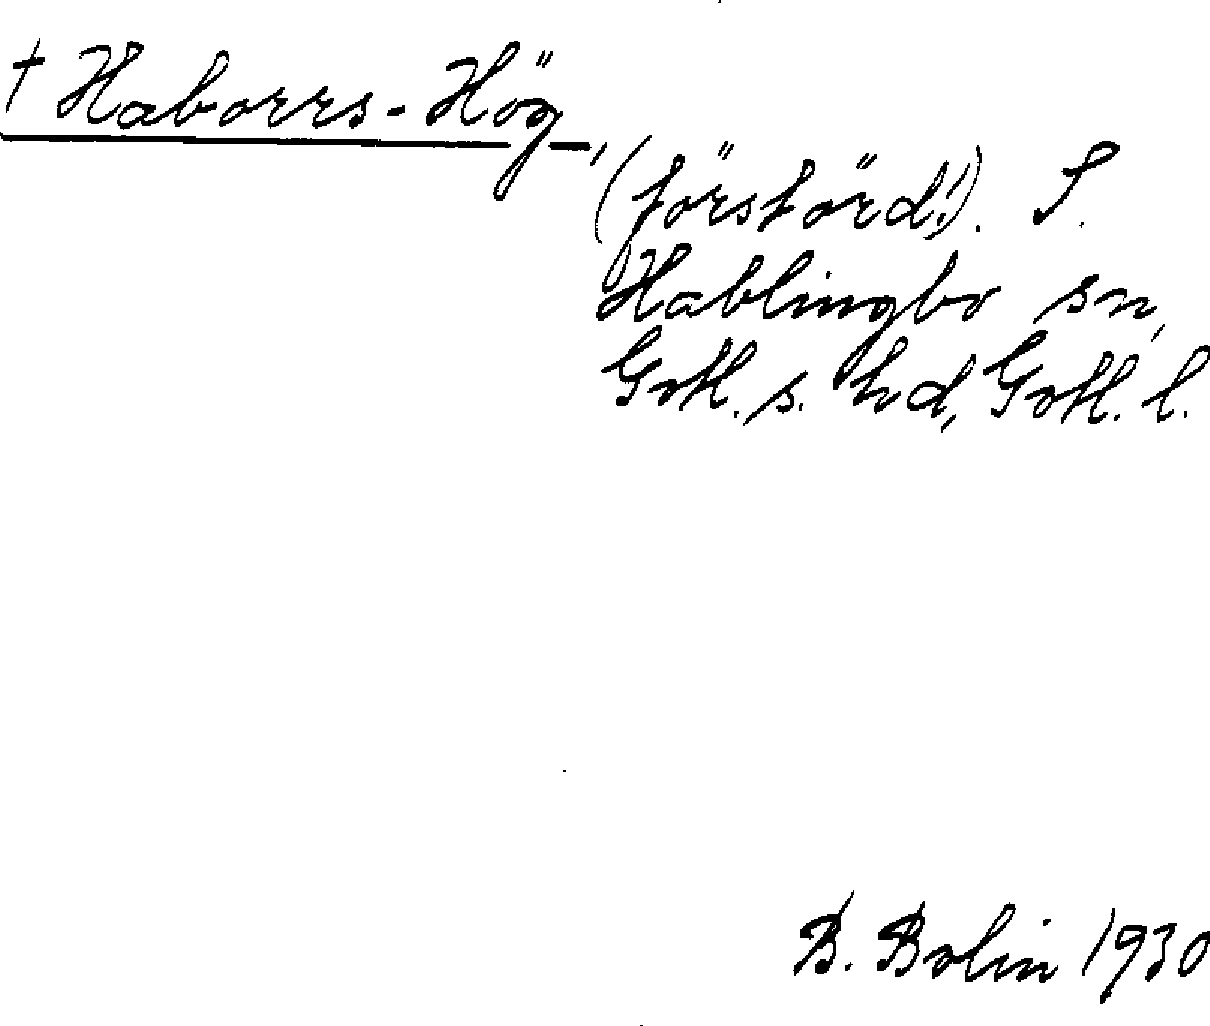 † Haborrs-Hög,
(förstörd!). S.
Hablingbo sn,
Gotl. s. hd, Gotl. l.
B. Bolin 1930